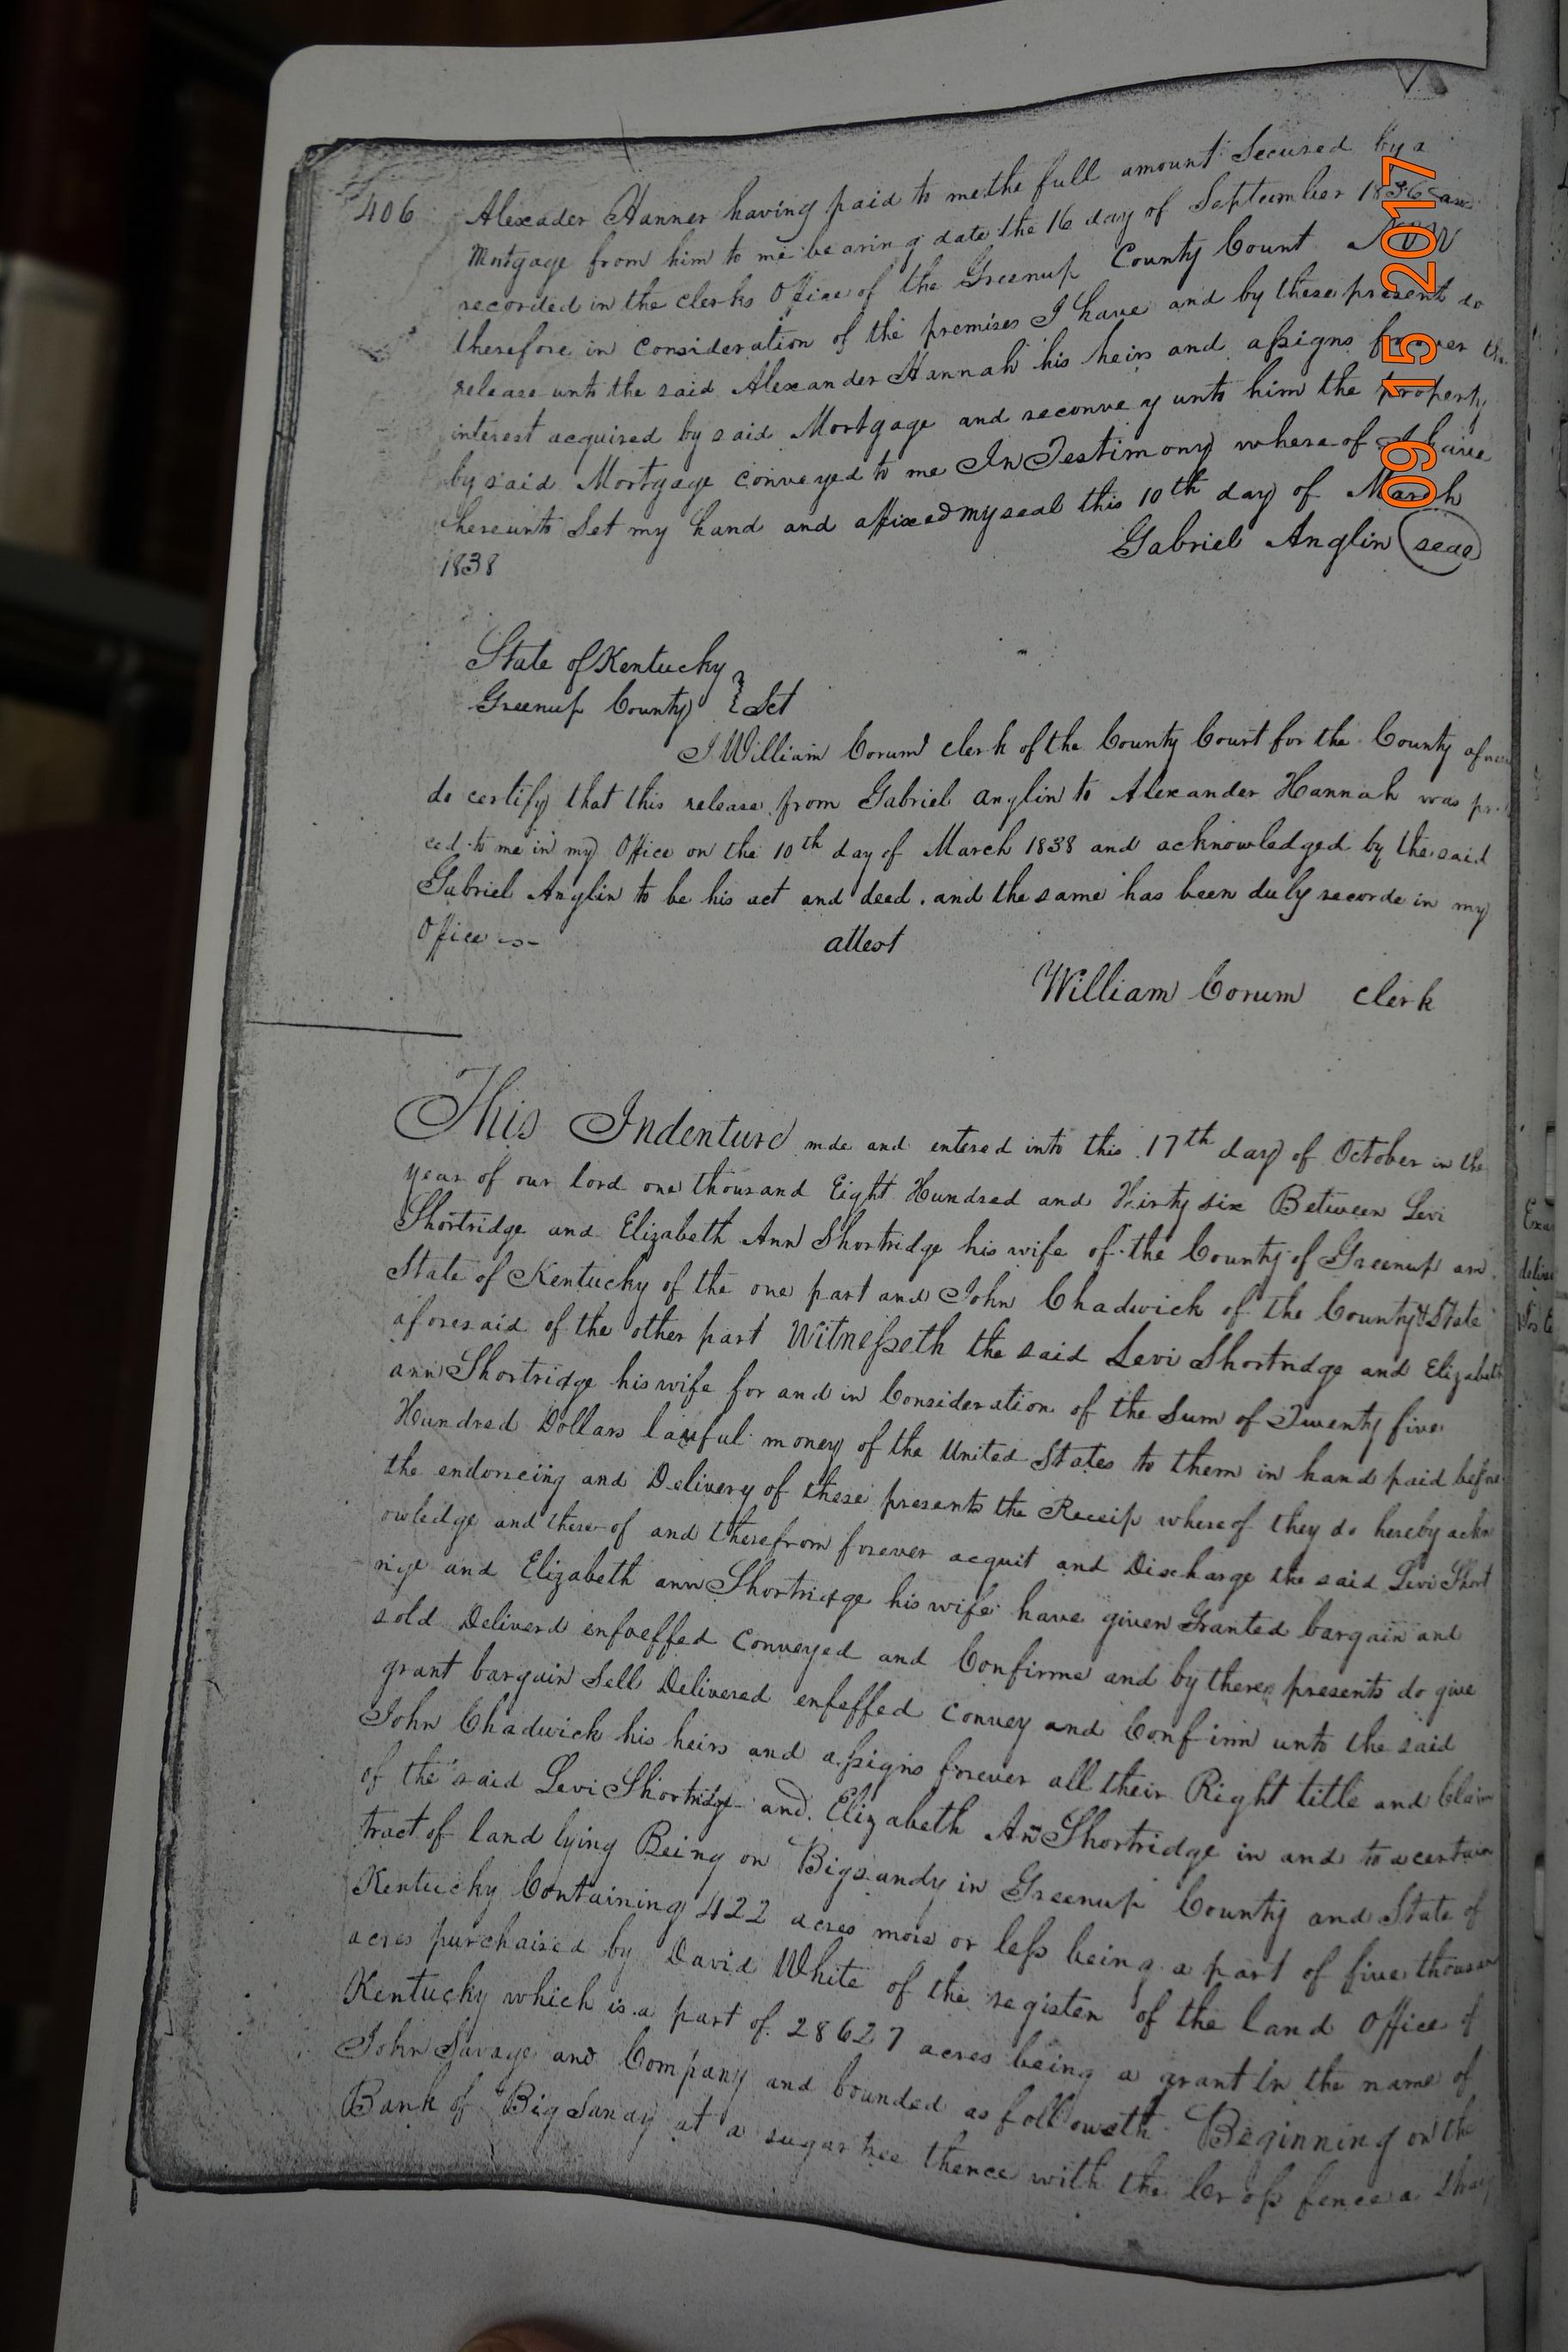 406 Alexader Hanner having paid to me the full amount Secured by a
Mortgage from him to me bearing date the 16 day of September 1836 and
recorded in the clerks Office of the Greenup County Count Now
therefore in consideration of the premises I have and by these present do
release unto the said Alexander Hannah his heirs and assigns forever the
interest acquired by said Mortgage and reconvey unto him the property
by said Mortgage conveyed to me In Testimony where of I have
hereunto Set my hand and affixed my seal this 10th day of March
1838 Gabriel Anglin seal
State of Kentucky
Greenup County } Sct
I William Corum clerk of the County Court for the County afore
do certify that this release from Gabriel anglin to Alexander Hannah was pr
ced to me in my Office on the 10th day of March 1838 and acknowledged by the said
Gabriel Anglin to be his act and deed. and the same has been duly recorde in my
Office
attest
William Corum Clerk
This Indenture mde and entered into this 17th day of October in the
year of our lord one thousand Eight Hundred and thirty six Between Levi
Shortridge and Elizabeth Ann Shortridge his wife of the County of Greenup an
State of Kentucky of the one part and John Chadwick of the County & State
aforesaid of the other part Witnesseth the said Levi Shortridge and Elizabeth
ann Shortridge his wife for and in Consideration of the Sum of Twenty five
Hundred Dollars lawful money of the United States to them in hand paid before
the endorseing and Delivery of these presents the Receip whereof they do hereby ackn
owledge and there-of and therefrom forever acquit and Discharge the said Levi Short
rige and Elizabeth ann Shortridge his wife have given Granted bargain and
sold Deliverd enfoeffed Conveyed and Confirme and by these presents do give
grant bargain Sell Delivered enfeffed Convey and Confirm unto the said
John Chadwick his heirs and assigns forever all their Right title and Claim
of the said Levi Shortridge and Elizabeth An Shortridge in and to a certain
tract of land lying Being on Bigsandy in Greenup County and State of
Kentucky Containing 422 acres more or less being a part of five thousan
acres purchaised by David White of the register of the land Office of
Kentucky which is a part of 28627 acres being a grant in the name of
John Savage and Company and bounded as followeth Beginning on the
Bank of Big Sandy at a sugar tree thence with the Cross fence a
09 15 2017